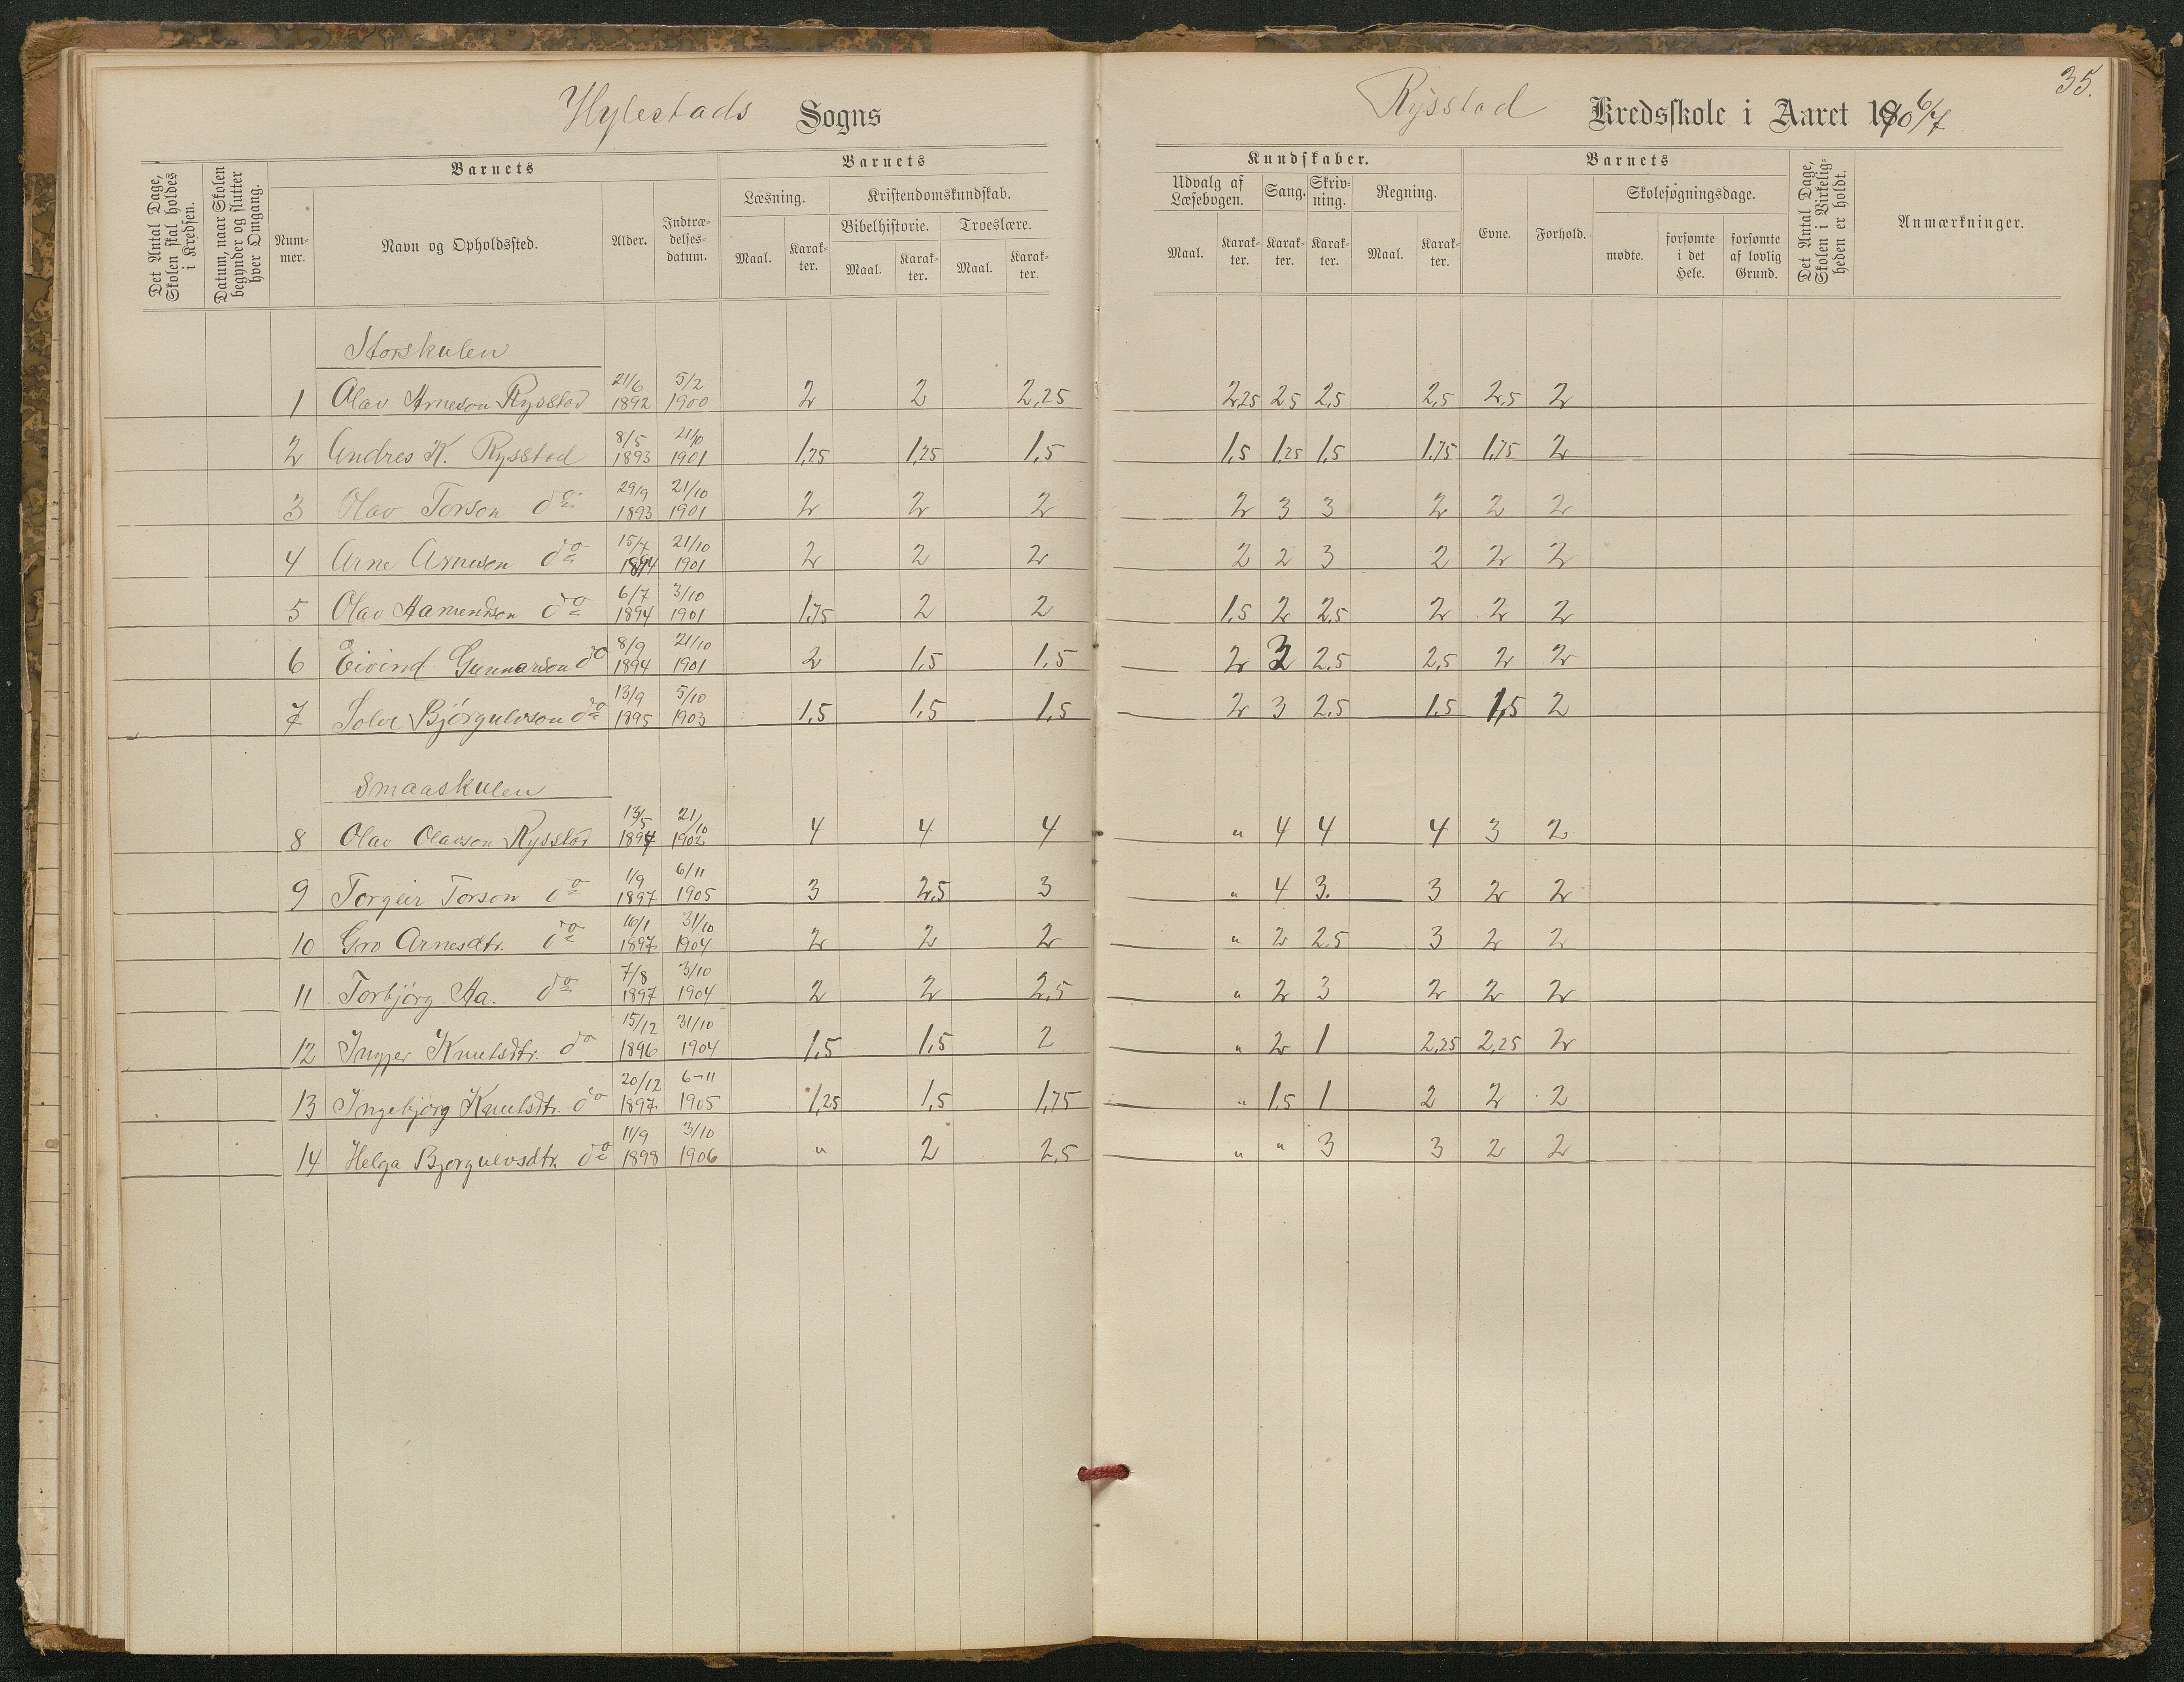 35.
Hylestads Sogns
Rysstad Kredsskole i Aaret 1906/7
Det Antal Dage, Skolen skal holdes i Kredsen.
Datum, naar Skolen begynder og slutter hver Omgang.
Barnets
Nummer.
Navn og Opholdssted.
Alder.
Indtrædelsesdatum.
Barnets
Læsning.
Maal.
Karakter.
Kristendomskundskab.
Bibelhistorie.
Maal.
Karakter.
Troeslære.
Maal.
Karakter.
Kundskaber.
Udvalg af Læsebogen.
Maal.
Karakter.
Sang.
Karakter.
Skrivning.
Karakter.
Regning.
Maal.
Karakter.
Barnets
Evne.
Forhold.
Skolesøgningsdage.
mødte.
forsømte i det Hele.
forsømte af lovlig Grund.
Det Antal Dage, Skolen i Virkeligheden er holdt.
Anmærkninger.
Storskulen
1 Olav Arneson Rysstad 21/6 1892 5/2 1900 2 2 2,25 2,25 2,5 2,5 2,5 2,5 2
2 Andres K. Rysstad 8/5 1893 21/10 1901 1,25 1,25 1,5 1,5 1,25 1,5 1,75 1,75 2
3 Olav Torson do 29/9 1893 21/10 1901 2 2 2 2 3 3 2 2 2
4 Arne Arneson do 15/7 1894 21/10 1901 2 2 2 2 2 3 2 2 2
5 Olav Aamundson do 6/7 1894 3/10 1901 1,75 2 2 1,5 2 2,5 2 2 2
6 Eivind Gunnarson do 8/9 1894 21/10 1901 2 1,5 1,5 2 3 2,5 2,5 2 2
7 Solve Bjørgulvson do 13/9 1895 5/10 1903 1,5 1,5 1,5 2 3 2,5 1,5 1,5 2
Smaaskulen
8 Olav Olavson Rysstad 13/5 1894 21/10 1902 4 4 4 " 4 4 4 3 2
9 Torgeir Torson do 1/9 1897 6/11 1905 3 2,5 3 " 4 3. 3 2 2
10 Gro Arnesdtr. do 16/1 1897 31/10 1904 2 2 2 " 2 2,5 3 2 2
11 Torbjørg Aa. do 7/8 1897 3/10 1904 2 2 2,5 " 2 3 2 2 2
12 Ingjer Knutsdtr. do 15/12 1896 31/10 1904 1,5 1,5 2 " 2 1 2,25 2,25 2
13 Ingebjørg Knutsdtr. do 20/12 1897 6-11 1905 1,25 1,5 1,75 " 1,5 1 2 2 2
14 Helga Bjørgulvsdtr. do 11/9 1898 3/10 1906 " 2 2,5 " " 3 3 2 2